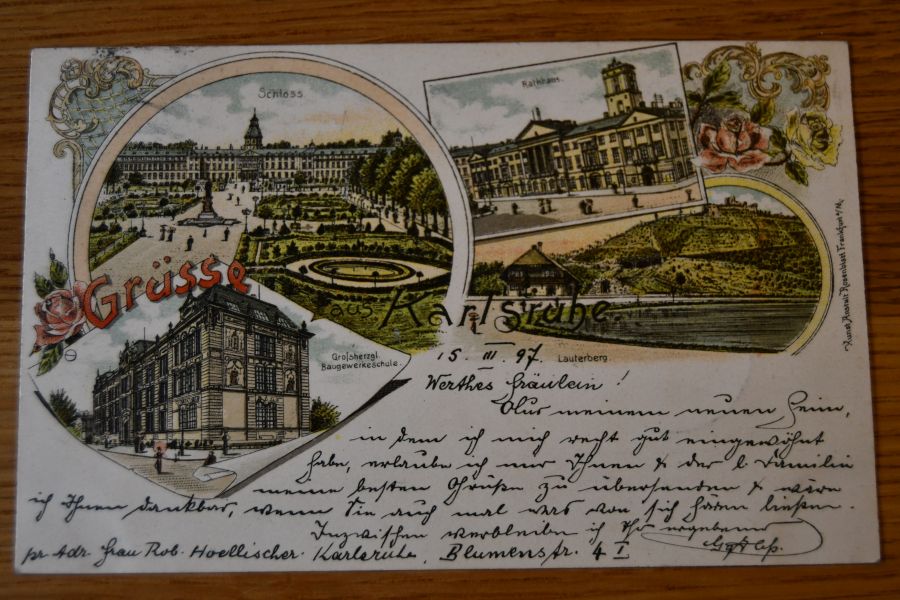 Schloss.
Rathhaus.
Grüsse
aus Karlsruhe.
Grossherzgl.
Baugewerkeschule.
Lauterberg.
Kunst Anstalt Rosenblatt Frankfurt a/M.
15. III. 97.
Werthes Fräulein!
Aus meinem neuen Heim,
in dem ich mich recht gut eingewöhnt
habe, erlaube ich mir Ihnen & der l. Familie
meine besten Grüße zu übersenden & wäre
ich Ihnen dankbar, wenn Sie auch mal was von sich hören ließen.
Inzwischen verbleibe ich Ihr ergebener
pr. Adr. Frau Rob. Hoellischer. Karlsruhe, Blumenstr. 4 I